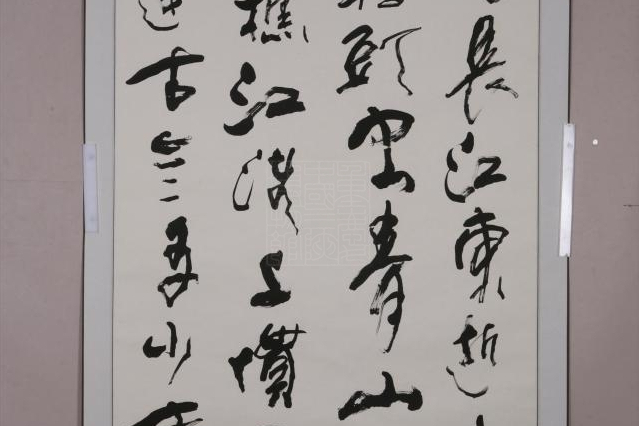 長江東逝
頭空青山
樵江渚上慣
逢古今多少